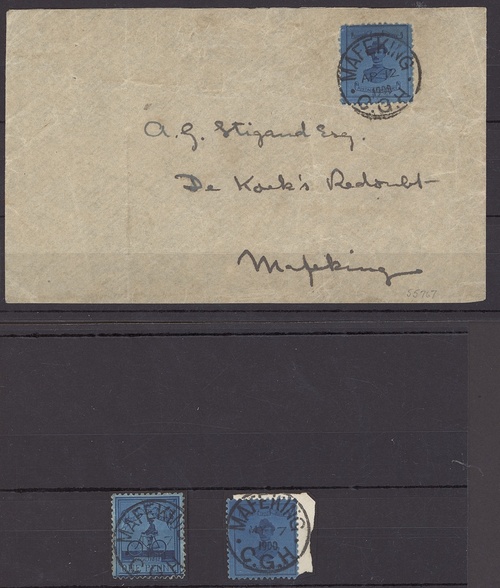 MAFEKING
AP 12
1900
C.G.H
A. G. Stigand Esq.
De Koek's Redoubt
Mafeking
S5767
MAFEKING
MAFEKING
AP 7
1900
C.G.H